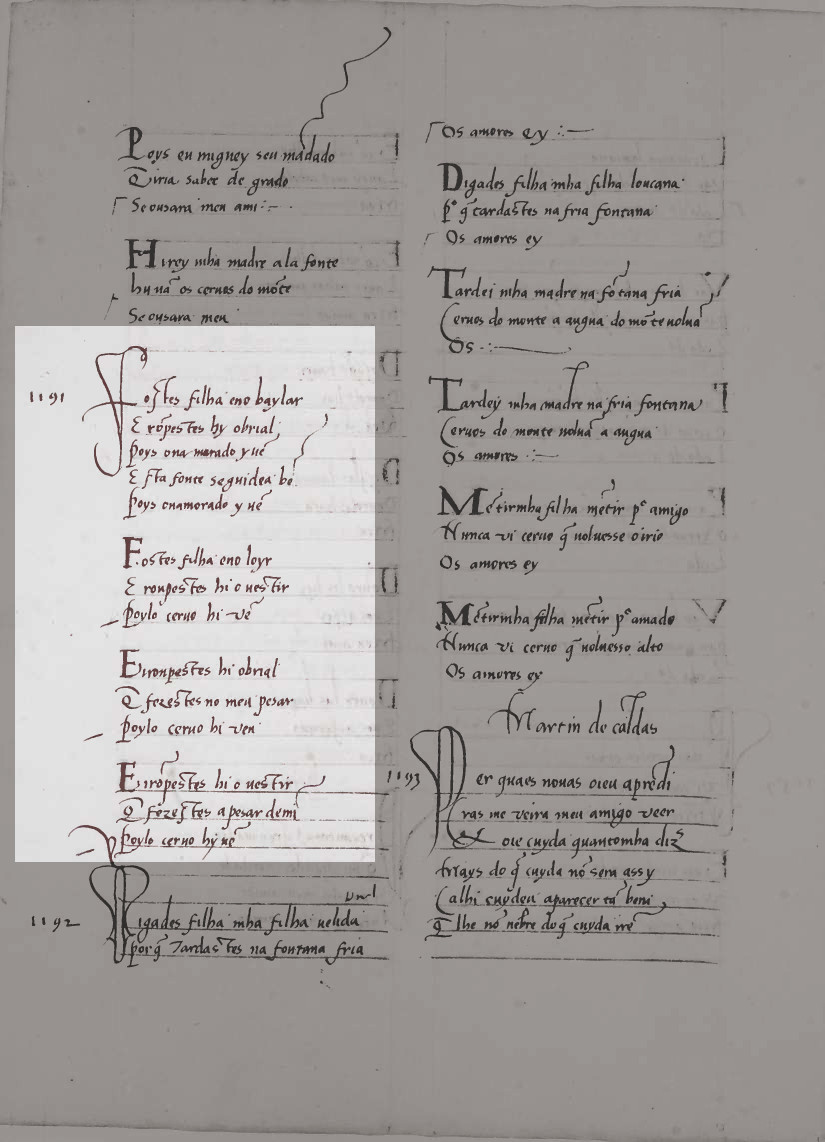 Poys eu migney seu mãdado
Q̃iria saber de grado
Se ousara meu ami
Hirey mha madre a la fonte
hu uã os ceruos do mõte
Se ousara meu
1191
Fostes filha eno baylar
E rõpestes hy obrial
Poys o namorado y uẽ
E sta fonte seguidea bẽ
Poys onamorado y uẽ
Fostes filha eno loyr
E ronpestes hi o uestir
Poylo ceruo hi uẽ
E rronpestes hi obrial
Q̃ fezestes no meu pesar
Poylo ceruo hi uen
E rrõpestes hi o uestir
Q̃ fezestes a pesar demi
Poylo ceruo hy uẽ
1192
Digades filha mha filha uelida
porq̃ tardastes na fontana fria
Os amores ey
Digades filha mha filha loucana
p̃ q̃ tardastes na fria fontana
Os amores ey
Tardei mha madre na fõtana fria
Ceruos do monte a augua do mõte uoluã
Os
Tardey mha madre na fria fontana
Ceruos do monte uoluã a augua
Os amores
Mẽtir mha filha mẽtir p̃ amigo
Nunca ui ceruo q̃ uoluesse o irio
Os amores ey
Mẽtir mha filha mẽtir p̃ amado
Nunca ui ceruo q̃ uoluesse alto
Os amores ey
Martin de caldas
1193
Per quaes nouas oieu aprẽdi
Cras me ueira meu amigo ueer
oie cuyda quantomha diz
Mays do q̃ cuyda nõ sera assy
Ca lhi cuydeu aparecer tã beni
q̃ lhe nõ do q̃ cuyda rrẽ